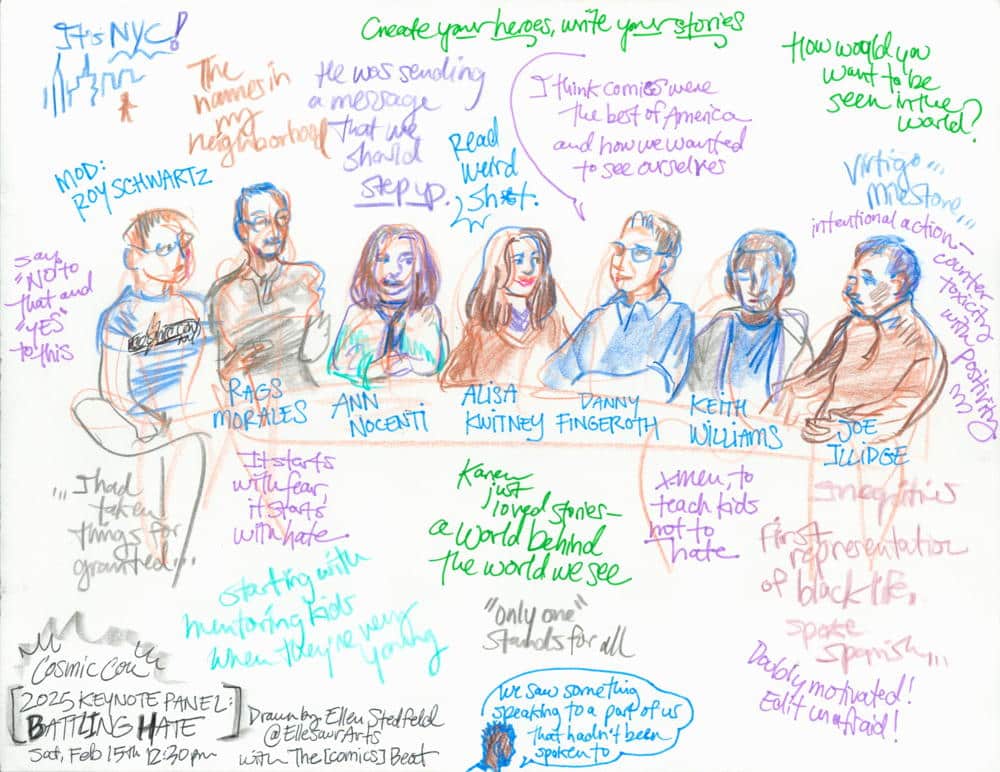 It's NYC!
Create your heroes, write your stories
The
names in
my
neighborhood
He was sending
a message
that we
should
step up.
Read
weird
sh*t.
I think comics were
the best of America
and how we wanted
to see ourselves
How would you
want to be
seen in the
world?
MOD:
ROY SCHWARTZ
Virtigo...
milestone...
intentional action—
counter
toxicity
with positivity
say
"NO" to
that and
"YES"
to this
RAGS
MORALES
ANN
NOCENTI
ALISA
KWITNEY
DANNY
FINGEROTH
KEITH
WILLIAMS
JOE
ILLIDGE
...I had
taken
things for
granted...
It starts
with fear,
it starts
with hate
Karen
just
loved stories—
a world behind
the world we see
X-men, to
teach kids
not to
hate
Inequities
First
representation
of black life,
spoke
Spanish...
starting with
mentoring kids
when they're very
young
"only one"
stands for all
Doubly motivated!
Edit unafraid!
Cosmic Con
[2025 KEYNOTE PANEL:
BATTLING HATE]
Sat, Feb 15th 12:30pm
Drawn by Ellen Stedfeld
@EllesaurArts
with The [comics] Beat
We saw something
speaking to a part of us
that hadn't been
spoken to